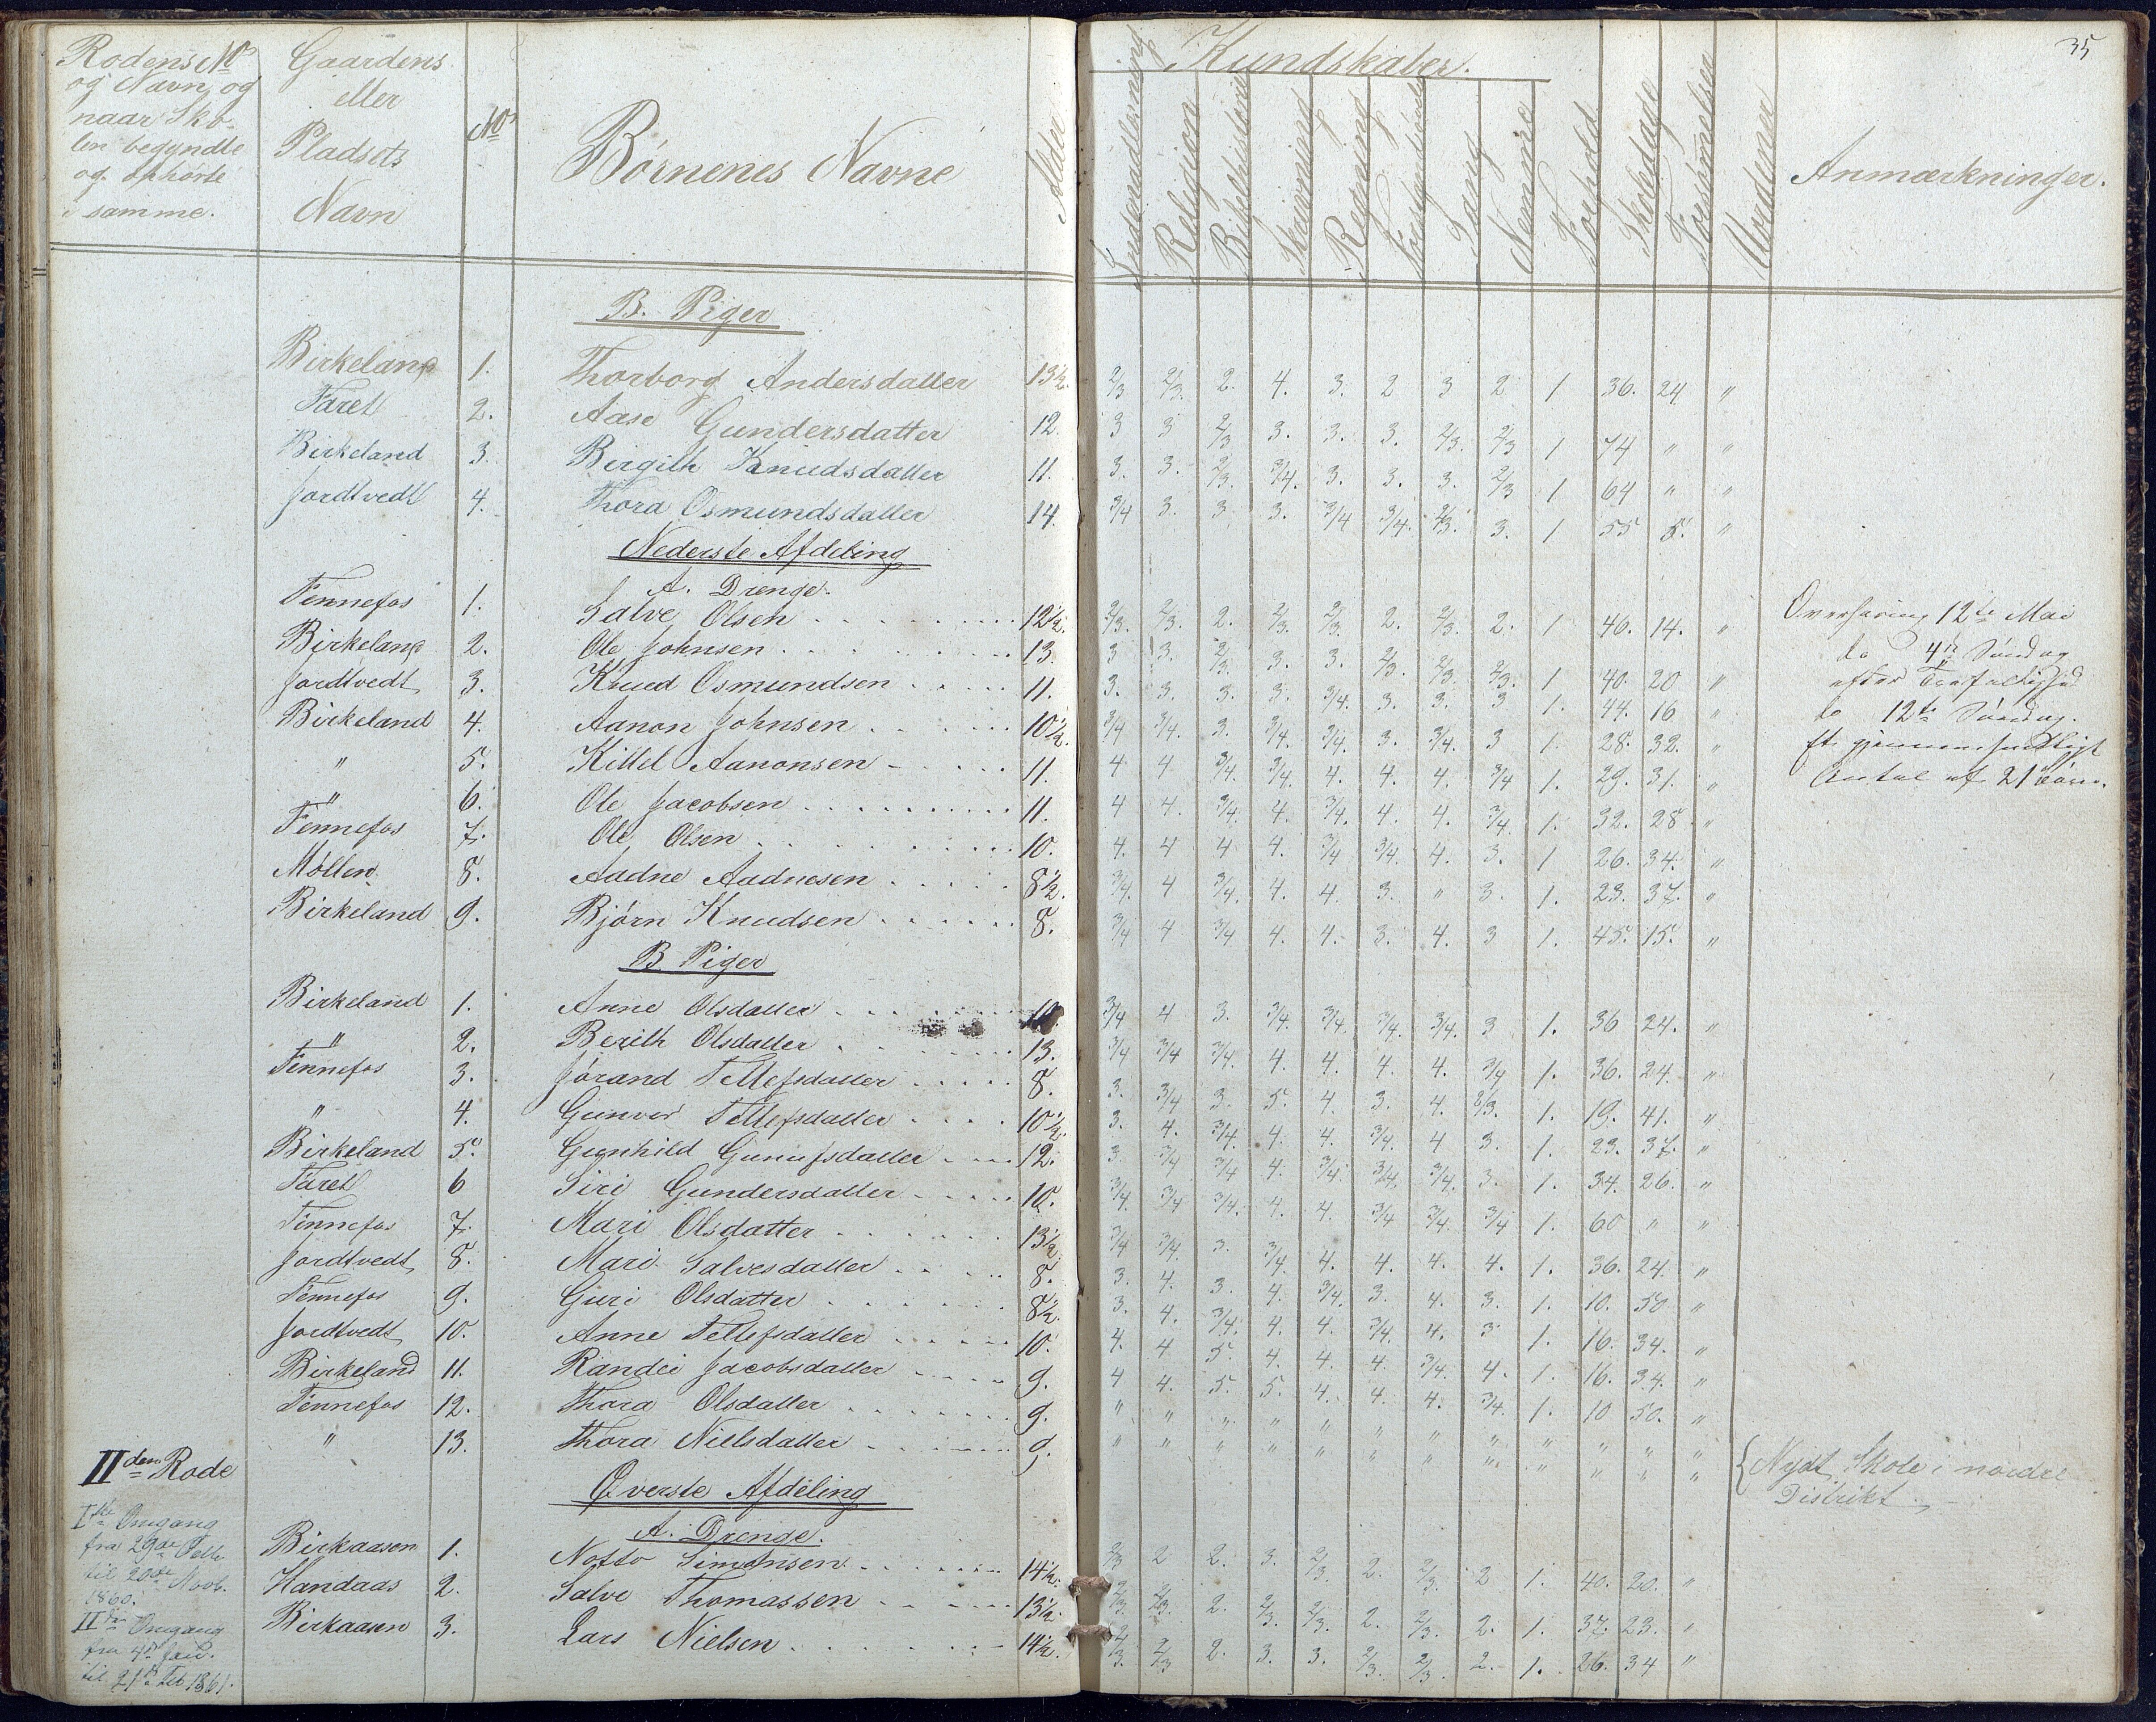 35
Rodens No og Navn, og naar Skolen begyndte og ophørte i samme.
Gaardens eller Pladsets Navn
No
Børnenes Navne
Alder
Kundskaber.
Indenadlæsning
Religion
Bibelhistorie
Skrivning
Regning
Sang
Nemme
Forhold
Skoledage
Forsømmelser
Uordener
Anmærkninger.
B. Piger
Birkeland 1. Thorborg Andersdatter 13½. 2/3 2/3. 2. 4. 3. 2 3 2 1 36. 24 "
Faret 2. Aase Gundersdatter 12. 3 3 2/3 3. 3. 3. 2/3. 2/3 1 74 " "
Birkeland 3. Birgith Knudsdatter 11. 3. 3. 2/3. 3/4. 3. 3. 3. 2/3 1 64 " "
Jordtvedt 4. Thora Osmundsdatter 14. 3/4 3. 3 3. 3/4 3/4. 2/3. 3. 1 55 5. "
Nederste Afdeling
A. Drenge.
Tennefos 1. Salve Olsen 12½. 2/3. 2/3. 2. 2/3. 2/3. 2. 2/3. 2. 1 46. 14. "
Birkeland 2. Ole Johnsen 13. 3 3. 2/3. 3. 3. 2/3. 2/3. 2/3. 1 40. 20 "
Jordtvedt 3. Knud Osmundsen 11. 3. 3. 3. 3. 3/4. 3. 3. 3 1. 44. 16 "
Birkeland 4. Aanon Johnsen 10½. 3/4 3/4. 3. 3/4. 3/4. 3. 3/4. 3 1. 28. 32. "
" 5. Kittel Aanonsen 11. 4 4 3/4. 3/4. 4. 4. 4. 3/4 1. 29. 31. "
" 6. Ole Jacobsen 11. 4 4. 3/4. 4. 3/4. 4. 4. 3/4. 1. 32. 28. "
Tennefos 7. Ole Olsen 10. 4. 4 4 4. 3/4 3/4. 4. 3. 1 26. 34. "
Møllen 8. Aadne Aadnesen 8½. 3/4. 4 3/4. 4. 4. 3. " 3. 1. 23. 37. "
Birkeland 9. Bjørn Knudsen 8. 3/4 4 3/4 4. 4. 3. 4. 3 1. 45. 15. "
Overhøring 12te Mai
do 4de Søndag
efter Trefoldighed
do 12te Søndag.
Et gjennemsnitligt
Antal af 21 Børn.
B. Piger
Birkeland 1. Anne Olsdatter 3/4 4 3. 3/4. 3/4. 3/4. 3/4. 3 1. 36 24. "
" 2. Berith Olsdatter 13. 3/4 3/4 3/4. 4. 4. 4. 4. 3/4 1. 36. 24. "
Tennefos 3. Jørand Tellefsdatter 8. 3. 3/4 3. 5. 4. 3. 4. 1. 19. 41. "
" 4. Gunvor Tellefsdatter 10½. 3. 4. 3/4. 4. 4. 3/4. 4 3. 1. 23. 37. "
Birkeland 5. Gunhild Gunufsdatter 12. 3. 3/4 3/4 4. 3/4. 3/4. 3/4. 3. 1. 34. 26. "
Faret 6 Siri Gundersdatter 10. 3/4. 3/4 3/4. 4. 4. 3/4 3/4. 3/4 1. 60 " "
Tennefos 7. Mari Olsdatter 13½. 3/4 3/4. 3. 3/4 4. 4. 4. 4. 1. 36. 24. "
Jordtvedt 8. Mari Salvesdatter 8. 3. 4. 3. 4. 3/4. 3. 4. 3. 1. 10. 50 "
Tennefos 9. Guri Olsdatter 8½. 3. 4. 3/4. 4. 4. 3/4. 4. 3 1. 16. 34. "
Jordtvedt 10. Anne Tellefsdatter 10. 4. 4 5. 4. 4. 4. 3/4. 4. 1. 16. 34. "
Birkeland 11. Randei Jacobsdatter 9. 4 4. 5. 5. 4. 4. 4. 3/4. 1. 10 50. "
Tennefos 12. Thora Olsdatter 9. " " " " " " " " " " " "
" 13. Thora Nielsdatter 9. " " " " " " " " " " " "
{Nydt Skole i nordre
Distrikt.
IIden Rode
Øverste Afdeling
A. Drenge.
Iste Omgang
fra 29de
til 20de Novb.
1860.
IIden Omgang
fra 4de Jan.
til 21de Feb 1861.
Birkaasen 1. Notto Simonsen 14½. 2/3 2 2. 3. 2/3. 2. 2/3. 2 1. 40. 20. "
Handaas 2. Salve Thomassen 13½. 2/3. 2/3. 2. 2/3 2/3. 2. 2/3. 2. 1. 37. 23. "
Birkaasen 3. Lars Nielsen 14½. 2/3. 2/3 2. 3. 3. 2/3. 2/3. 2. 1. 26. 34 "